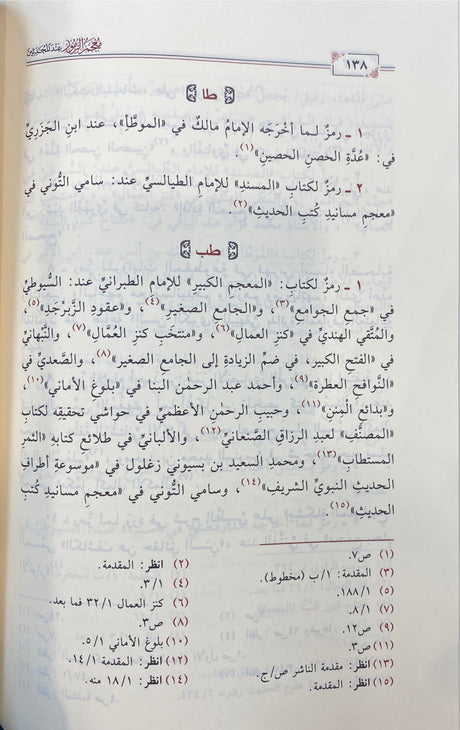 معجم الرموز عند المحدثين
١٣٨
طا
١ ـ رمزٌ لـما أخْرَجَه الإمامُ مالكٌ في «الموطَّأ»، عند ابن الجَزَرِيِّ
في: «عُدَّةِ الحصنِ الحصينِ»(١).
٢ ـ رمز لكتابِ: «المسندِ» للإمامِ الطيالسيِّ عند: سامي التُّوني في
«معجمِ مسانيدِ كُتبِ الحديثِ»(٢).
طب
١ ـ رمزٌ لكتابِ: «المعجمِ الكبيرِ» للإمامِ الطبرانيِّ عندَ: السُّيوطيِّ
في «جمعِ الجوامعِ»(٣)، و«الجامعِ الصغيرِ»(٤)، و«عقودِ الزَّبرْجَدِ»(٥)،
والمُتَّقي الهنديِّ في «كنزِ العمالِ»(٦)، و«منتخَبِ كنزِ العُمَّالِ»(٧)، والنَّبْهانيِّ
في «الفتحِ الكبير، في ضمِّ الزيادةِ إلى الجامعِ الصغير»(٨)، والصَّعديِّ في
«النَّوافحِ العطرة»(٩)، وأحمد عبد الرحمٰن البنا في «بلوغِ الأماني»(١٠)،
و«بدائعِ المِننِ»(١١)، وحبيبِ الرحمٰنِ الأعظميِّ في حواشي تحقيقِه لكتابِ
«المصنَّفِ» لعبدِ الرزاق الصَّنعانيِّ(١٢)، والألبانيِّ في طلائعِ كتابِه «الثمر
المستطاب»(١٣)، ومحمدِ السعيد بن بسيوني زغلول في «موسوعة أطرافِ
الحديثِ النبويِّ الشريفِ»(١٤)، وسامي التُّوني في «معجمِ مسانيدِ كُتبِ
الحديثِ»(١٥).
(١) ص٧.
(٢) انظر: المقدمة.
(٣) المقدمة: ١/ب (مخطوط).
(٤) ٣/١.
(٥) ١٨٨/١.
(٦) كنز العمال ٣٢/١ فما بعد.
(٧) ٨/١.
(٨) ص٣.
(٩) ص١٢.
(١٠) بلوغ الأماني ٥/١.
(١١) ص٣.
(١٢) انظر: المقدمة ١٤/١.
(١٣) انظر: مقدمة الناشر ص/ج.
(١٤) انظر: ١٨/١ منه.
(١٥) انظر: المقدمة.